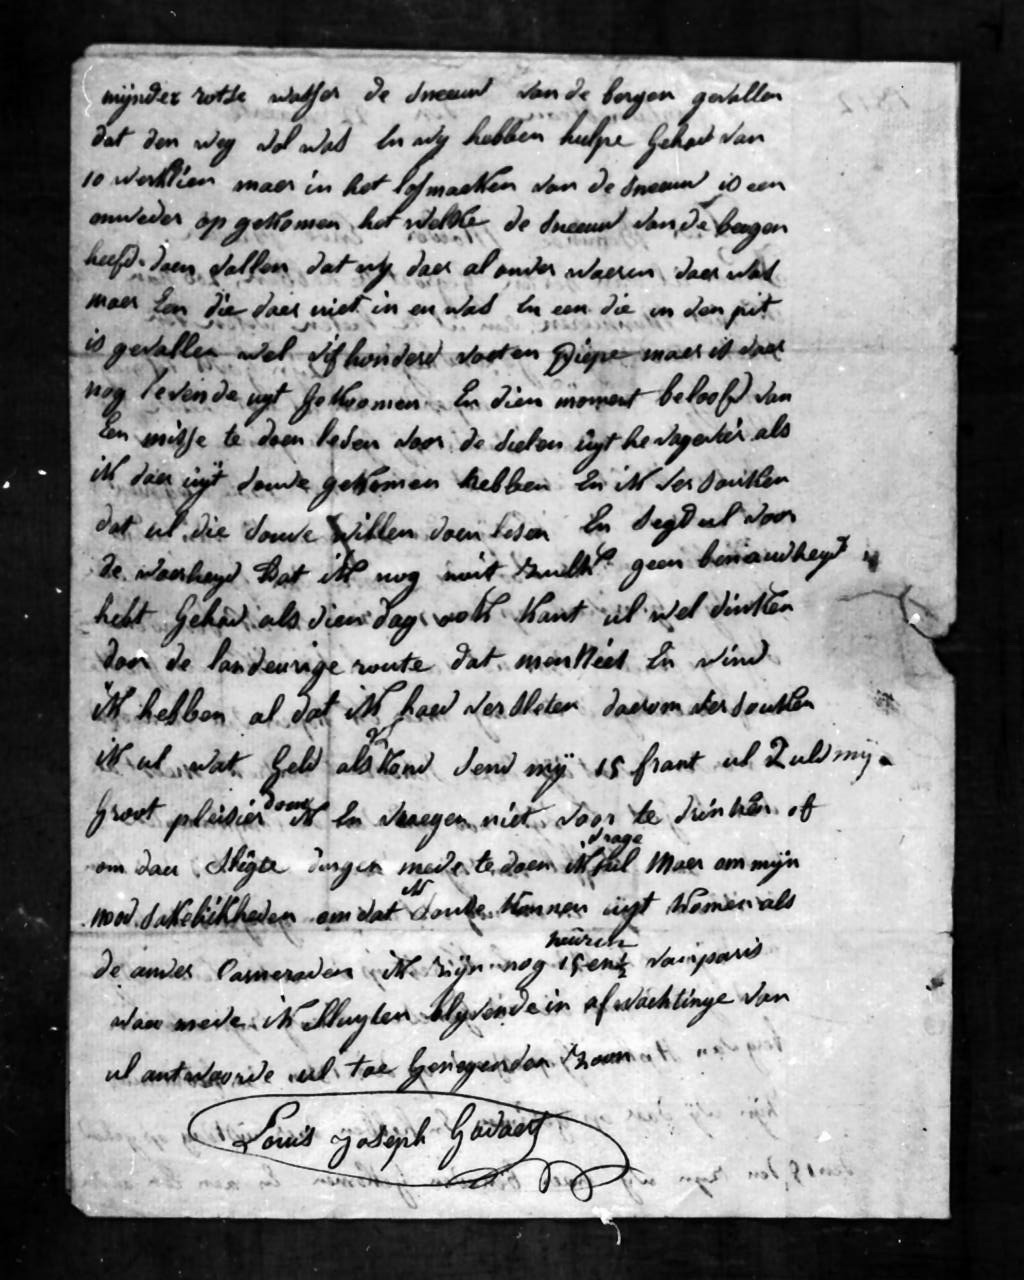 mijnder rotse wasser de sneeuw van de bergen gevallen
dat den weg vol was En wy hebben hulpe gehad van
10 werklien maer in het losmaeken van de sneeuw is een
onweder op gekomen het welke de sneeuw van de bergen
heefd doen vallen dat wy daer al onder waeren daer was
maer Een die daer niet in en was En een die in den pit
is gevallen wel vyfhonderd voeten Diepe maer is daer
nog levende uyt gekoomen En dien moment beloofd van
Een misse te doen lesen voor de sielen uyt he vagevier als
ik daer uyt soude gekomen hebben En ik versouken
dat ul die soude willen doen lesen En segd ul voor
de waerheyd Dat ik nog noit zulke geen benauwheyd
hebt gehad als dien dag ook kant ul wel dinken
door de landeurige route dat men Reist En wind
ik hebben al dat ik haed versleten daerom versouken
ik ul wat geld als gy kend send my 15 frank ul Zuld mij
groot pleisier doen ik En vraegen niet voor te drinken of
om daer sligte dingen mede te doen ik vrage ul Maer om mijn
noodsakelikheden om dat ik soude konnen uyt komen als
de ander Cameraden ik zijn nog 15 en ½ heuren van paris
waer mede ik sluyten blyvende in afwachtinge van
ul antwoorde ul toe genegenden zoon
Louis Joseph Gavaert